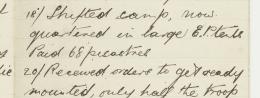 18/ Shifted camp, now
quartered in large E.P. tents
Paid 68 piastres
20/ Received orders to get ready
mounted, only half the troop